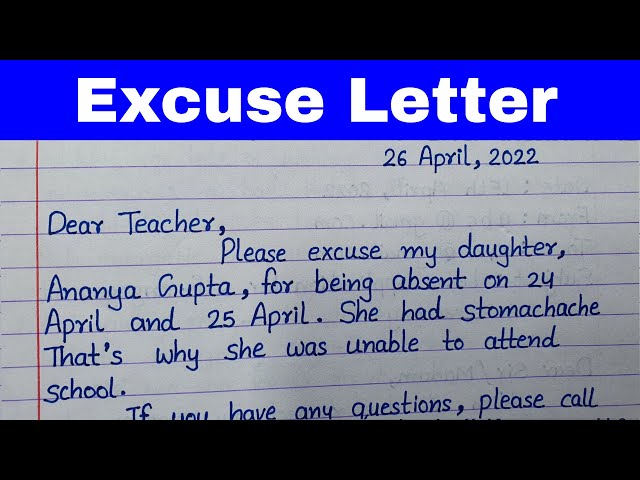 Excuse Letter
26 April, 2022
Dear Teacher,
Please excuse my daughter,
Ananya Gupta, for being absent on 24
April and 25 April. She had stomachache
That's why she was unable to attend
school.
If you have any questions, please call